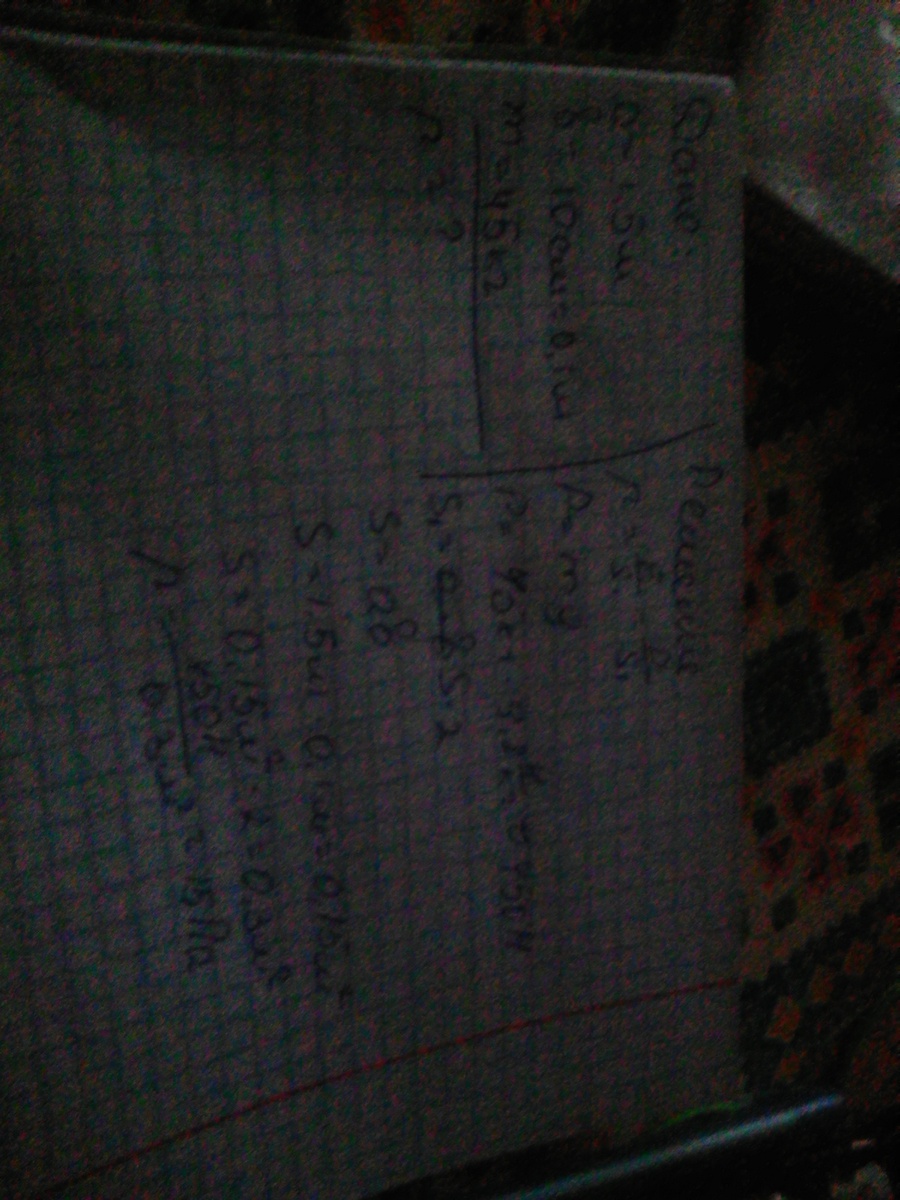 Дано:
a = 1.5м
b = 10см = 0.1м
m = 45кг
p = ?
Решение
p = F/S = P/S₁
P = mg
P = 45кг · 9.8 = 450Н
S₁ = S · 2
S = ab
S = 1.5м · 0.1м = 0.15м²
S = 0.15м² · 2 = 0.3м²
p = 450Н/0.3м² = 15Па